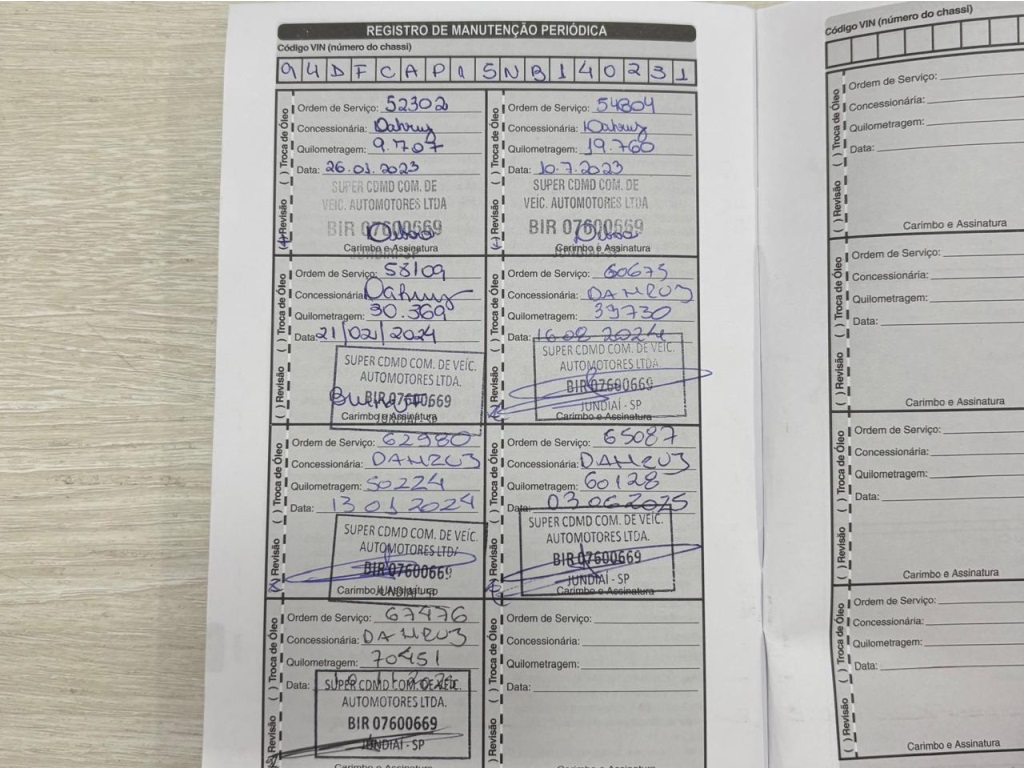 REGISTRO DE MANUTENÇÃO PERIÓDICA
Código VIN (número do chassi)
94DFCAP15NB140231
Ordem de Serviço: 52302
Concessionária: Dahruj
Quilometragem: 9.707
Data: 26.01.2023
SUPER CDMD COM. DE
VEÍC. AUTOMOTORES LTDA
BIR 07600669
Carimbo e Assinatura
JUNDIAÍ-SP
( ) Revisão ( ) Troca de Óleo
Ordem de Serviço: 54804
Concessionária: Dahruj
Quilometragem: 19.760
Data: 10.7.2023
SUPER CDMD COM. DE
VEÍC. AUTOMOTORES LTDA
BIR 07600669
Carimbo e Assinatura
JUNDIAÍ-SP
( ) Revisão ( ) Troca de Óleo
Ordem de Serviço: 58109
Concessionária: Dahruj
Quilometragem: 30.369
Data: 21/02/2024
SUPER CDMD COM. DE VEÍC.
AUTOMOTORES LTDA.
BIR 07600669
Carimbo e Assinatura
JUNDIAÍ-SP
( ) Revisão ( ) Troca de Óleo
Ordem de Serviço: 60675
Concessionária: DAHRUJ
Quilometragem: 39730
Data: 16 08 2024
SUPER CDMD COM. DE VEÍC.
AUTOMOTORES LTDA.
BIR 07600669
JUNDIAÍ - SP
Carimbo e Assinatura
( ) Revisão ( ) Troca de Óleo
Ordem de Serviço: 62980
Concessionária: DAHRUJ
Quilometragem: 50224
Data: 13 01 2024
SUPER CDMD COM. DE VEÍC.
AUTOMOTORES LTDA
BIR 07600669
Carimbo e Assinatura
JUNDIAÍ - SP
( ) Revisão ( ) Troca de Óleo
Ordem de Serviço: 65087
Concessionária: DAHRUJ
Quilometragem: 60128
Data: 03 06 2025
SUPER CDMD COM. DE VEÍC.
AUTOMOTORES LTDA.
BIR 07600669
JUNDIAÍ - SP
Carimbo e Assinatura
( ) Revisão ( ) Troca de Óleo
Ordem de Serviço: 67476
Concessionária: DAHRUJ
Quilometragem: 70451
Data:
SUPER CDMD COM. DE VEÍC.
AUTOMOTORES LTDA.
BIR 07600669
JUNDIAÍ - SP
Carimbo e Assinatura
( ) Revisão ( ) Troca de Óleo
Ordem de Serviço:
Concessionária:
Quilometragem:
Data:
Carimbo e Assinatura
( ) Revisão ( ) Troca de Óleo
Código VIN (número do chassi)
Ordem de Serviço:
Concessionária:
Quilometragem:
Data:
Carimbo e Assinatura
( ) Revisão ( ) Troca de Óleo
Ordem de Serviço:
Concessionária:
Quilometragem:
Data:
Carimbo e Assinatura
( ) Revisão ( ) Troca de Óleo
Ordem de Serviço:
Concessionária:
Quilometragem:
Data:
Carimbo e Assinatura
( ) Revisão ( ) Troca de Óleo
Ordem de Serviço:
Concessionária:
Quilometragem:
Data:
Carimbo e Assinatura
( ) Revisão ( ) Troca de Óleo